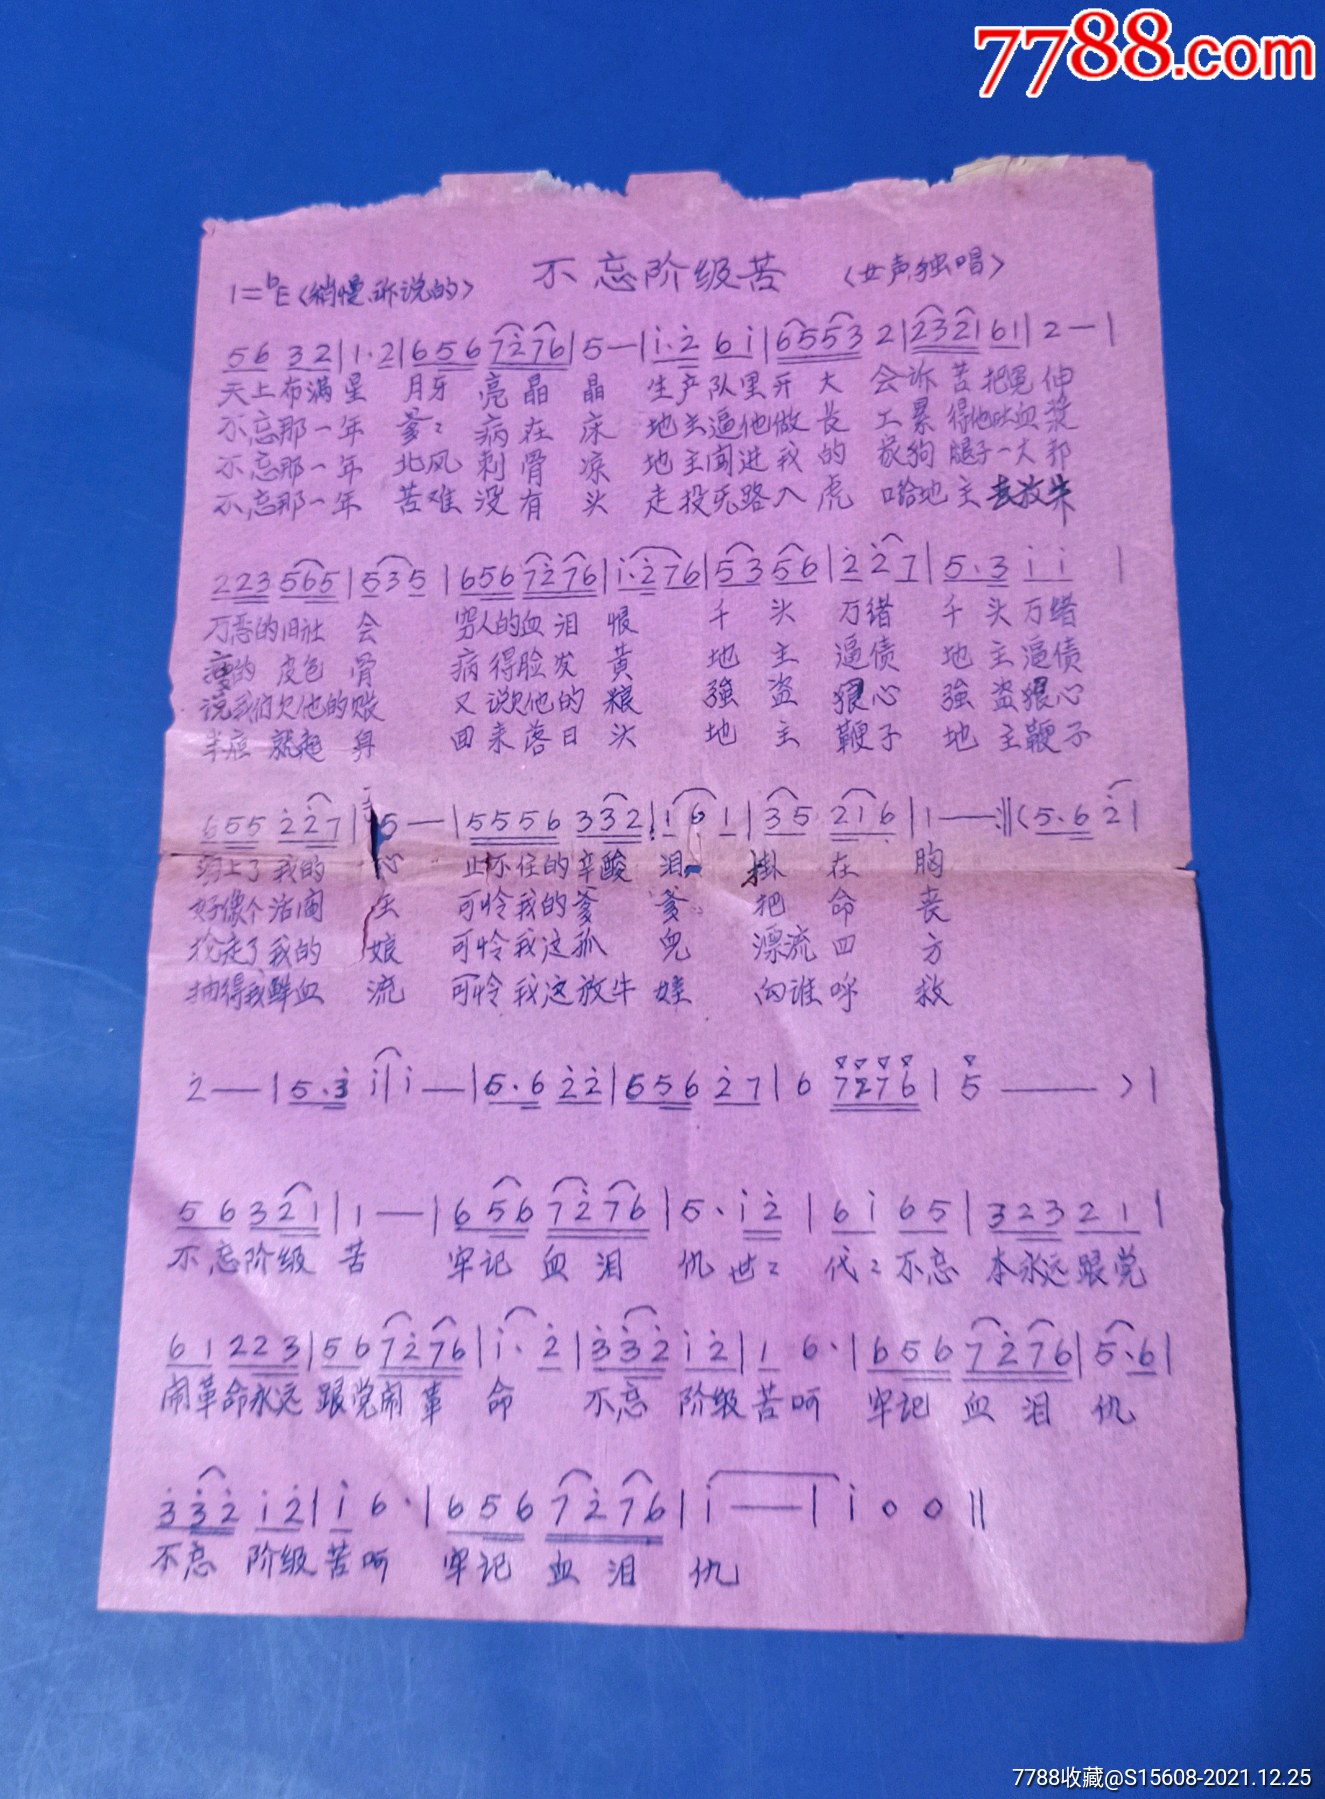 7788.com
不忘阶级苦 〈女声独唱〉
1=♭E〈稍慢、诉说的〉
56 32|1·2|656 7276|5—|1·2 61|6553 2|2321 61|2—|
天上布满星 月牙亮晶晶 生产队里开大会诉苦把冤伸
不忘那一年 爹〻病在床 地主逼他做长工累得他吐血浆
不忘那一年 北风刺骨凉 地主闯进我的家狗腿子一大邦
不忘那一年 苦难没有头 走投无路入虎口给地主去放牛
223 565|535|656 7276|1·276|53 56|2 27|5·3 11|
万恶的旧社会 穷人的血泪恨 千头万绪 千头万绪
瘦的皮包骨 病得脸发黄 地主逼债 地主逼债
说我们欠他的账 又说欠他的粮 強盗狠心 強盗狠心
半夜就起身 回来落日头 地主鞭子 地主鞭子
655 227|5—|5556 332|161|35 216|1—:‖(5·6 2|
涌上了我的心 止不住的辛酸泪 掛在胸
好像个活阎王 可怜我的爹爹 把命丧
抢走了我的娘 可怜我这孤兒 漂流四方
抽得我鲜血流 可怜我这放牛娃 向谁呼救
2—|5·3 1|1—|5·6 22|556 27|6 7276|5——)|
56 321|1—|656 7276|5·12|61 65|323 21|
不忘阶级苦 牢记血泪仇 世〻代〻不忘本永远跟党
61 223|56 7276|1·2|332 12|1 6·|656 7276|5·6|
闹革命永远跟党闹革命 不忘阶级苦呵 牢记血泪仇
332 12|1 6·|656 7276|1—|1 0 0‖
不忘阶级苦呵 牢记血泪仇
7788收藏@S15608-2021.12.25